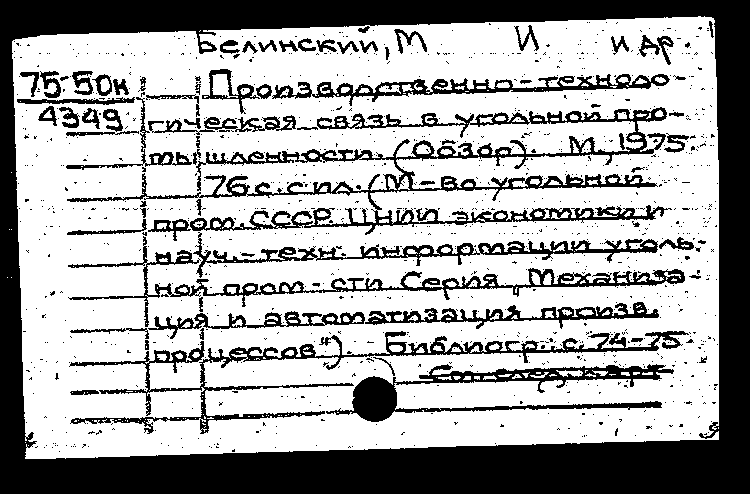 Белинский, М И. и др.
75-50к
4349
Производственно-техноло-
гическая связь в угольной про-
мышленности. (Обзор). М., 1975.
76 с. с ил. (М-во угольной
пром. СССР. ЦНИИ экономики и
науч.-техн. информации уголь-
ной пром-сти Серия „Механиза-
ция и автоматизация произв.
процессов"). Библиогр.: с. 74-75
См. след. карт